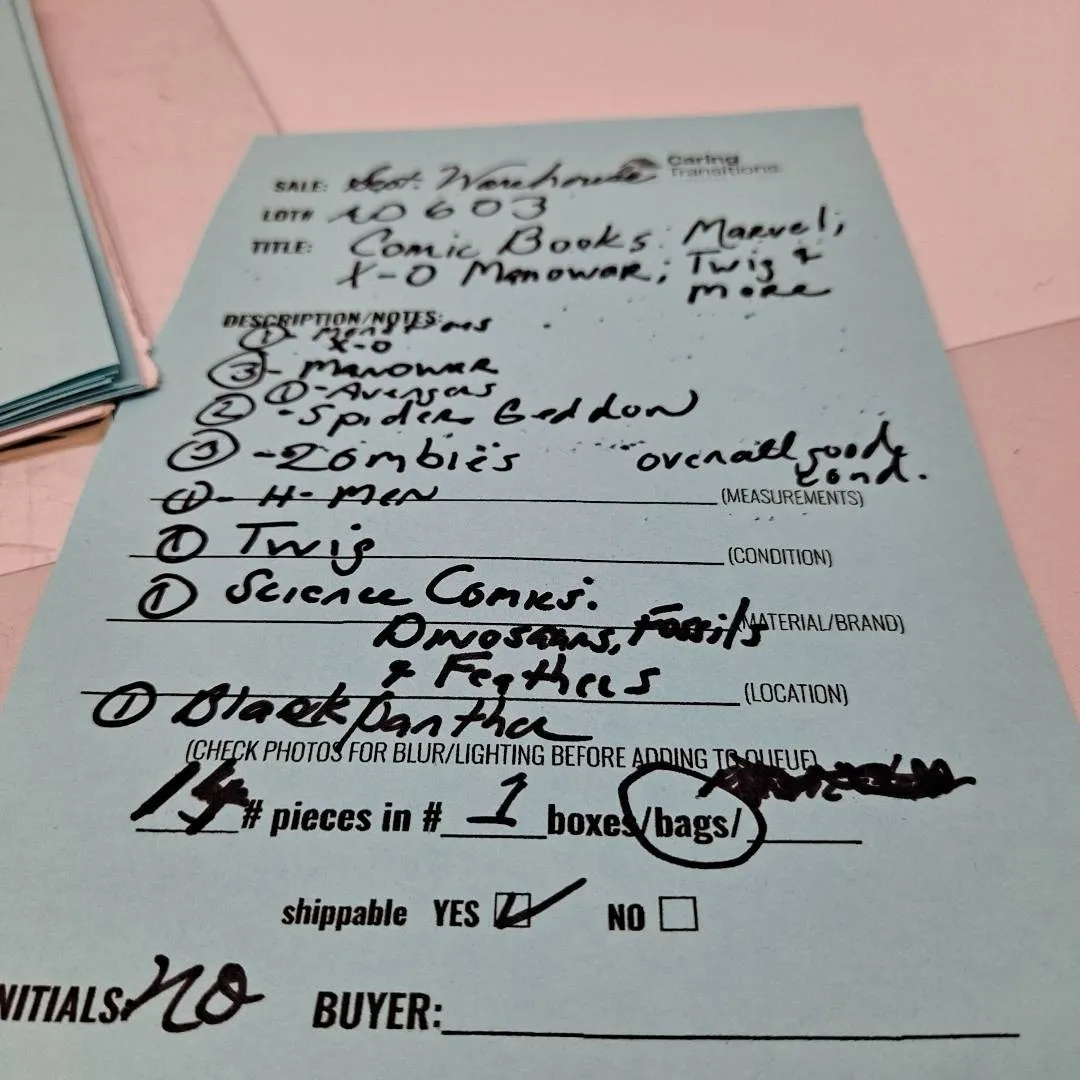 Caring
Transitions
SALE: Sept. Warehouse
LOT# NO 603
TITLE: Comic Books: Marvel;
X-O Manowar; Twig &
more
DESCRIPTION/NOTES:
①-
X-O
③- Manowar
①-Avengers
②-Spider Geddon
③-Zombies overall good
cond.
①- X-Men (MEASUREMENTS)
① Twig (CONDITION)
① Science Comics:
Dinosaurs, Fossils (MATERIAL/BRAND)
& Feathers (LOCATION)
① Black Panther
(CHECK PHOTOS FOR BLUR/LIGHTING BEFORE ADDING TO QUEUE)
14 # pieces in # 1 boxes/bags/
shippable YES NO
INITIALS: NO BUYER: